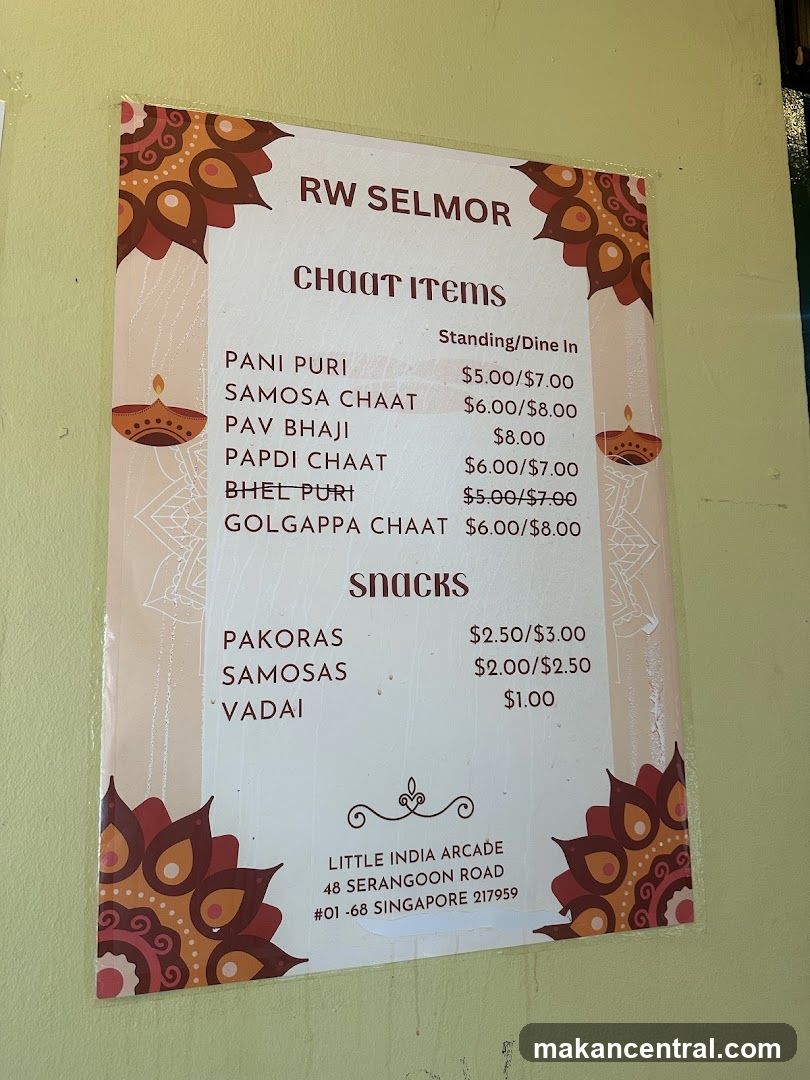 RW SELMOR
CHAAT ITEMS
Standing/Dine In
PANI PURI $5.00/$7.00
SAMOSA CHAAT $6.00/$8.00
PAV BHAJI $8.00
PAPDI CHAAT $6.00/$7.00
BHEL PURI $5.00/$7.00
GOLGAPPA CHAAT $6.00/$8.00
SNACKS
PAKORAS $2.50/$3.00
SAMOSAS $2.00/$2.50
VADAI $1.00
LITTLE INDIA ARCADE
48 SERANGOON ROAD
#01 -68 SINGAPORE 217959
makancentral.com